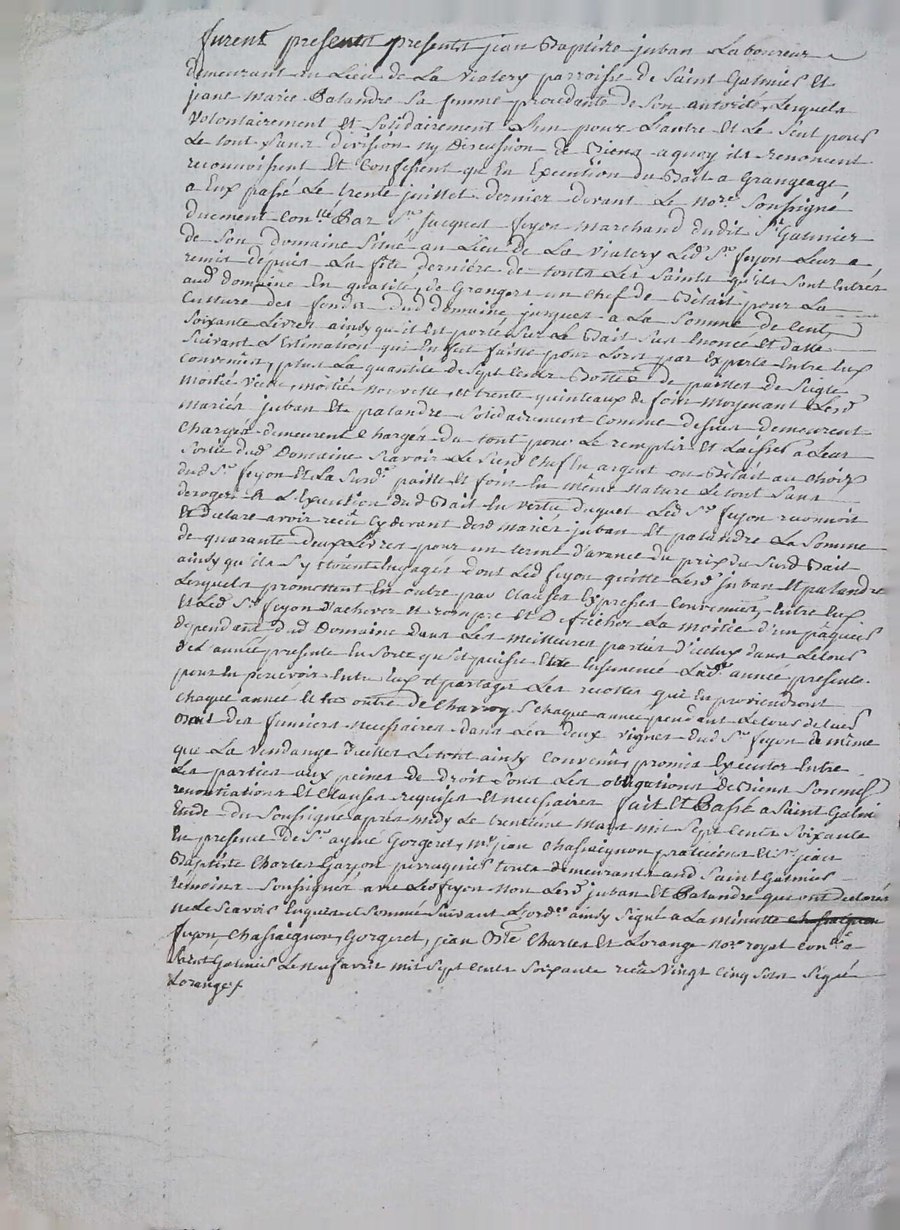 furent presents presents jean Baptiste juban Laboureur
demeurant au Lieu de La Viatery parroisse de Saint Galmier Et
jeane Marie Palandre Sa femme procedante de Son autorité, Lesquels
Volontairement Et Solidairement L'un pour L'autre Et Le Seul pour
Le tout Sans division ny Discussion de Biens a quoy ils renoncent
reconnoissent Et Confessent qu'En Execution du Bail a Grangeage
a Eux passé Le trente juillet dernier devant Le Nore Soussigné
duement Conllé Par Sr jacques feyon Marchand dudit St Galmier
de Son domaine Situé au Lieu de La Viatery Led. Sr feyon Leur a
remis depuis La fête derniere de touts Les Saints qu'ils Sont Entrés
aud Domaine En qualité de Grangers un Chef de Betail pour La
Culture des fonds dud domaine jusques a La Somme de Cent
Soixante Livres ainsy qu'il Est porté Sur Le Bail Sus Enoncé Et datté
Suivant L'Estimation qui En fut faitte pour Lors par Experts Entre Eux
Convenus, plus La quantité de Sept Cents Bottes de pailles de Seigle
Moitié Vielle moitié Nouvelle, et trente quintaux de foin Moyenant Lesd
Mariés juban Et palandre Solidairement Comme dessus demeurent
Chargés demeurent Chargés du tout pour Le remplir Et Laisser a Leur
Sortie dud Domaine Scavoir Le Susd Chef En argent ou Betail au Choix
dud Sr feyon Et La Susd. paille Et foin En même Nature Le tout Sans
deroger a L'Execution dud Bail En Vertu duquel Led Sr feyon reconnoit
Et Declare avoir reçû Cydevant desd mariés juban Et palandre La Somme
de quarante deux Livres pour un terme d'avance du prix du Susd Bail
ainsy qu'ils S'y Etoint Engagés dont Led feyon quitte Lesd juban Et palandre
Lesquels promettent En outre par Clauses Expresses Convenues, Entre Eux
Et Led Sr feyon d'achever et rompre et Defricher La moitié d'un pâquier
dependant dud Domaine dans Les meilleures parties d'iceluy dans Le Cours
de L'année presente En Sorte qu'il puisse Etre Ensemencé Lad. année presente
pour En percevoir Entre Eux et partager Les recoltes qui En proviendront
chaque année Et En outre de Charroy S chaque année pendant Le Cours de Leur
Bail des fumiers necessaires dans Les deux vignes dud Sr feyon de même
que La Vendange d'icelles Le tout ainsy Convenu, promis Executer Entre
Les parties aux peines de Droit Sous Les obligations de Biens Soumis
renonciations Et Clauses requises Et necessaires fait Et Passé a Saint Galmi
Etude du Soussigné après midy Le trentième Mars mil Sept Cents Soixante
En presence de Sr aymé Gorgeret, Me jean Chassaignon praticiens Et Sr jean
Baptiste Charles Garjon perruquier touts demeurants aud Saint Galmier
temoins Soussignés avec Led feyon Non Lesd juban Et Palandre qui ont declarés
ne Le Scavoir Enquis et Sommés Suivant L'ordce ainsy Signé a La minutte
feyon, Chassaignon, Gorgeret, jean Bte Charles Et Lorange Nore royal Conllé a
Saint Galmier Le neuf avril mil Sept Cents Soixante reçû Vingt Cinq Sols Signé
Lorange